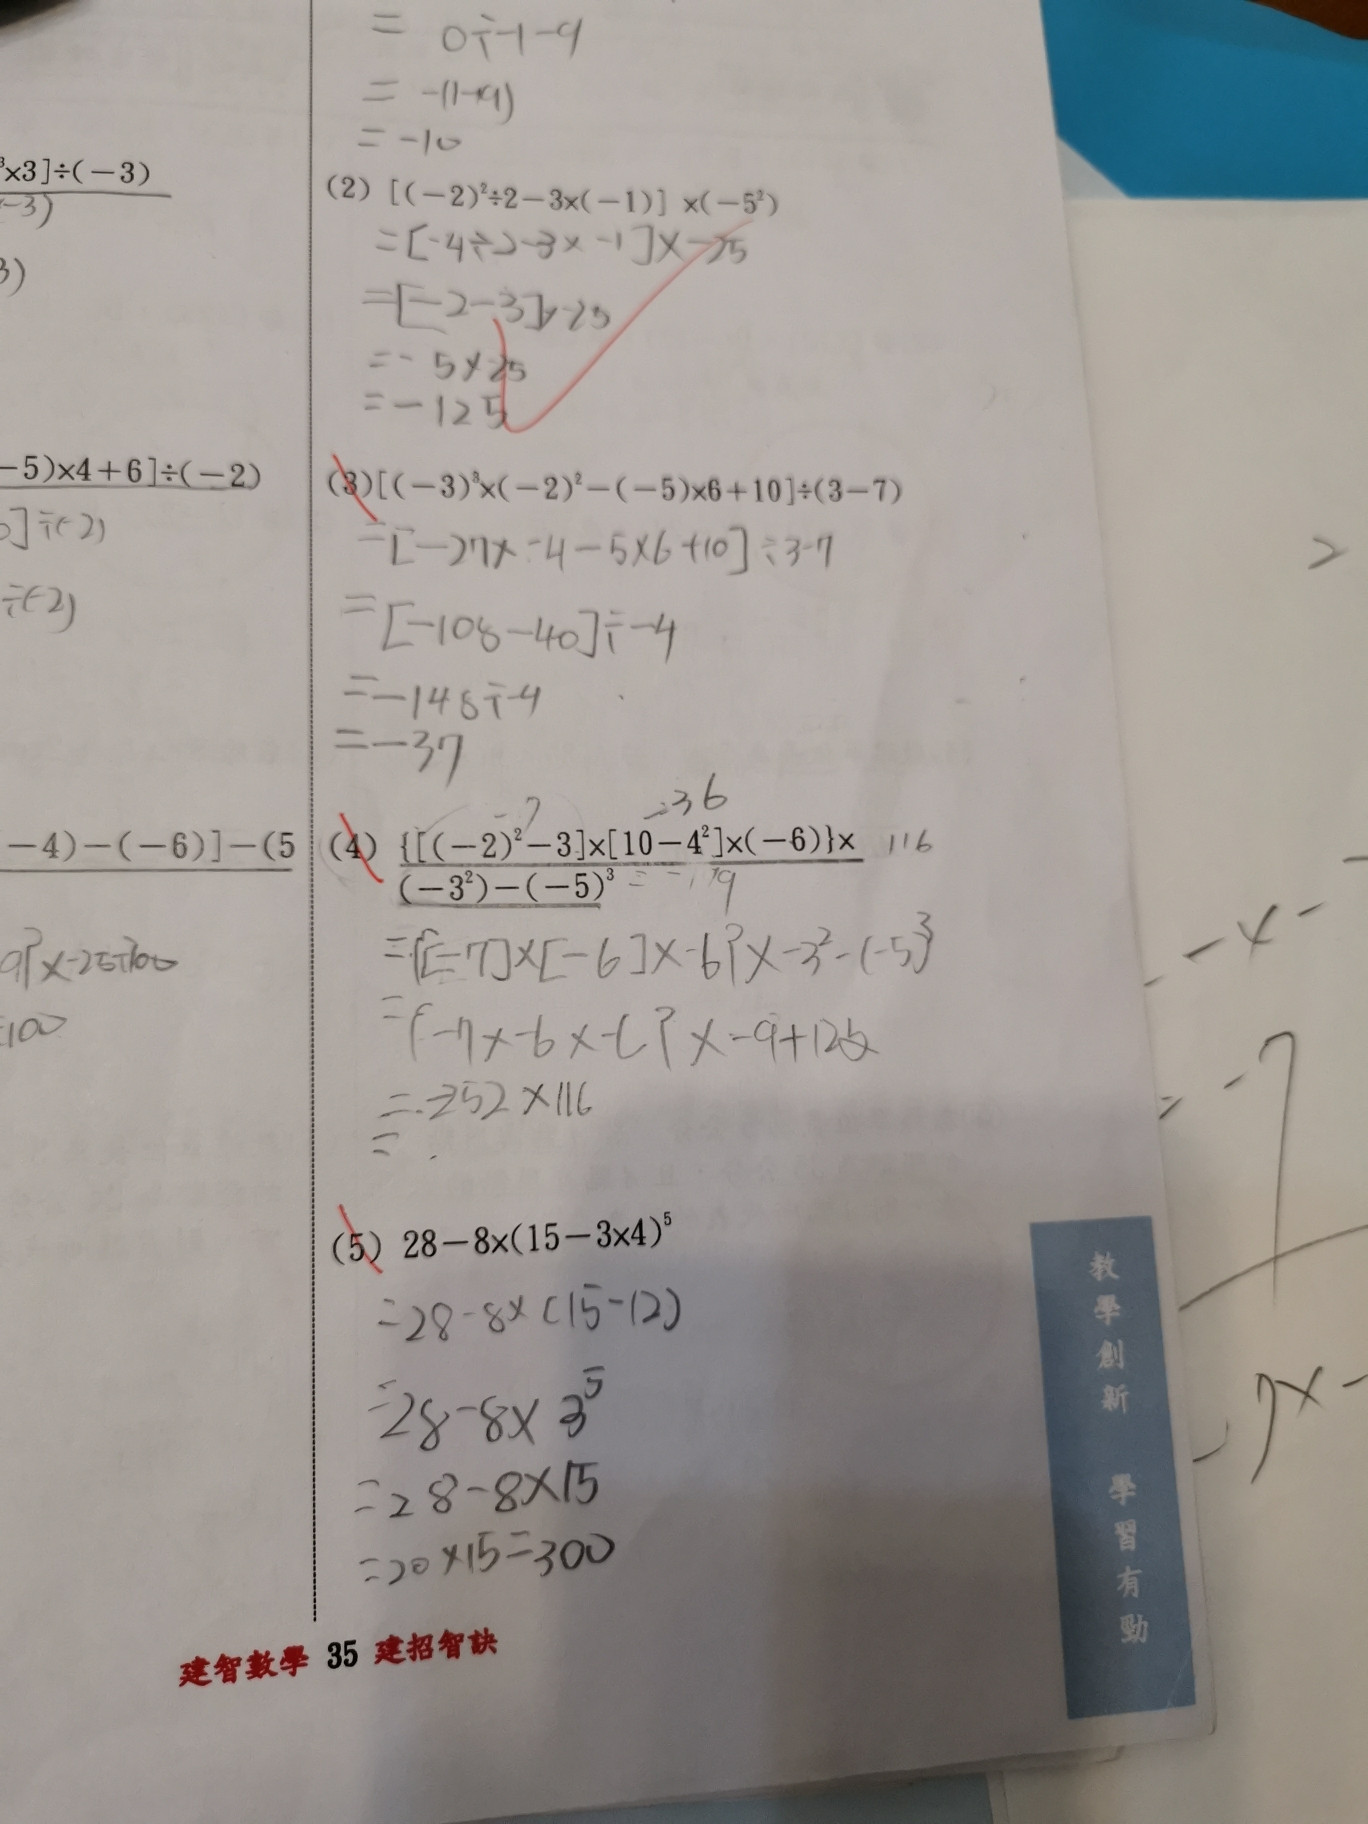 = 0÷-1-9
= -(1+9)
= -10
³×3]÷(−3)
-3)
3)
(2) [(−2)²÷2−3×(−1)] ×(−5²)
=[-4÷2-3×-1]×-25
=[-2-3]×-25
=-5×25
=-125
−5)×4+6]÷(−2)
]÷(-2)
÷(-2)
(3)[(−3)³×(−2)²−(−5)×6+10]÷(3−7)
=[-27×-4-5×6+10]÷3-7
=[-108-40]÷-4
=-148÷-4
=-37
−4)−(−6)]−(5
9}×-25-100
-100
-7 -36
(4) {[(−2)²−3]×[10−4²]×(−6)}× 116
(−3²)−(−5)³
={[-7]×[-6]×-6}×-3²-(-5)³
={-7×-6×-6}×-9+125
=-252×116
=
(5) 28−8×(15−3×4)⁵
=28-8×(15-12)
=28-8×3⁵
=28-8×15
=20×15=300
建智數學 35 建招智訣
教學創新 學習有勁
-×-
= -7